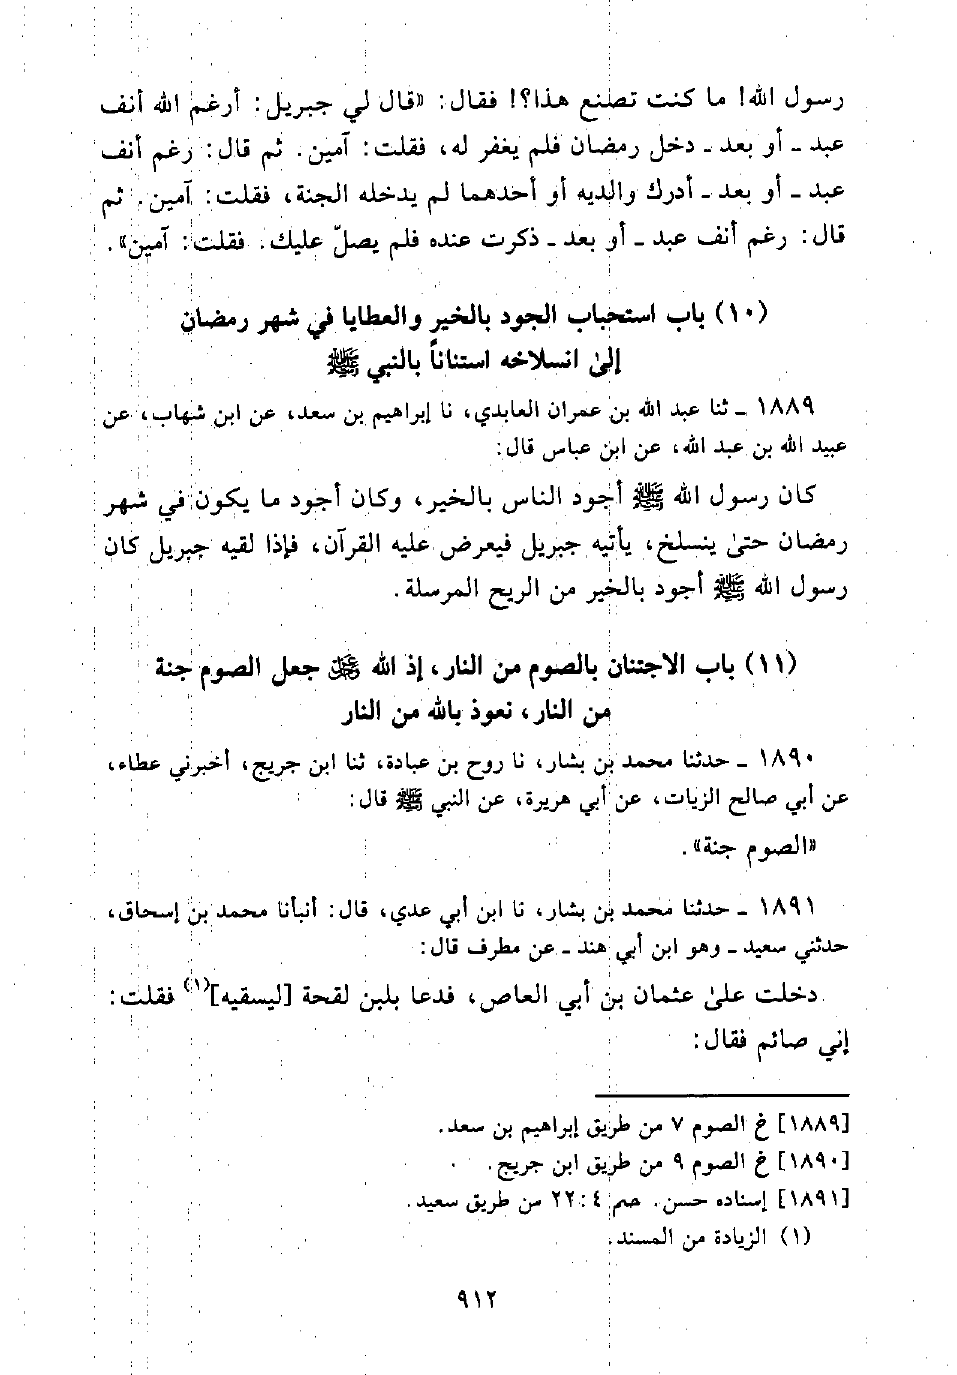 رسول الله! ما كنت تصنع هذا؟! فقال: «قال لي جبريل: أرغم الله أنف
عبد ـ أو بعد ـ دخل رمضان فلم يغفر له، فقلت: آمين. ثم قال: رغم أنف
عبد ـ أو بعد ـ أدرك والديه أو أحدهما لم يدخله الجنة، فقلت: آمين. ثم
قال: رغم أنف عبد ـ أو بعد ـ ذكرت عنده فلم يصلّ عليك. فقلت: آمين».
(١٠) باب استحباب الجود بالخير والعطايا في شهر رمضان
إلىٰ انسلاخه استناناً بالنبي ﷺ
١٨٨٩ ـ ثنا عبد الله بن عمران العابدي، نا إبراهيم بن سعد، عن ابن شهاب، عن
عبيد الله بن عبد الله، عن ابن عباس قال:
كان رسول الله ﷺ أجود الناس بالخير، وكان أجود ما يكون في شهر
رمضان حتىٰ ينسلخ، يأتيه جبريل فيعرض عليه القرآن، فإذا لقيه جبريل كان
رسول الله ﷺ أجود بالخير من الريح المرسلة.
(١١) باب الاجتنان بالصوم من النار، إذ الله ﷻ جعل الصوم جنة
من النار، نعوذ بالله من النار
١٨٩٠ ـ حدثنا محمد بن بشار، نا روح بن عبادة، ثنا ابن جريج، أخبرني عطاء،
عن أبي صالح الزيات، عن أبي هريرة، عن النبي ﷺ قال:
«الصوم جنة».
١٨٩١ ـ حدثنا محمد بن بشار، نا ابن أبي عدي، قال: أنبأنا محمد بن إسحاق،
حدثني سعيد ـ وهو ابن أبي هند ـ عن مطرف قال:
دخلت علىٰ عثمان بن أبي العاص، فدعا بلبن لقحة [ليسقيه](١) فقلت:
إني صائم فقال:
[١٨٨٩] خ الصوم ٧ من طريق إبراهيم بن سعد.
[١٨٩٠] خ الصوم ٩ من طريق ابن جريج.
[١٨٩١] إسناده حسن. حم ٤: ٢٢ من طريق سعيد.
(١) الزيادة من المسند.
٩١٢